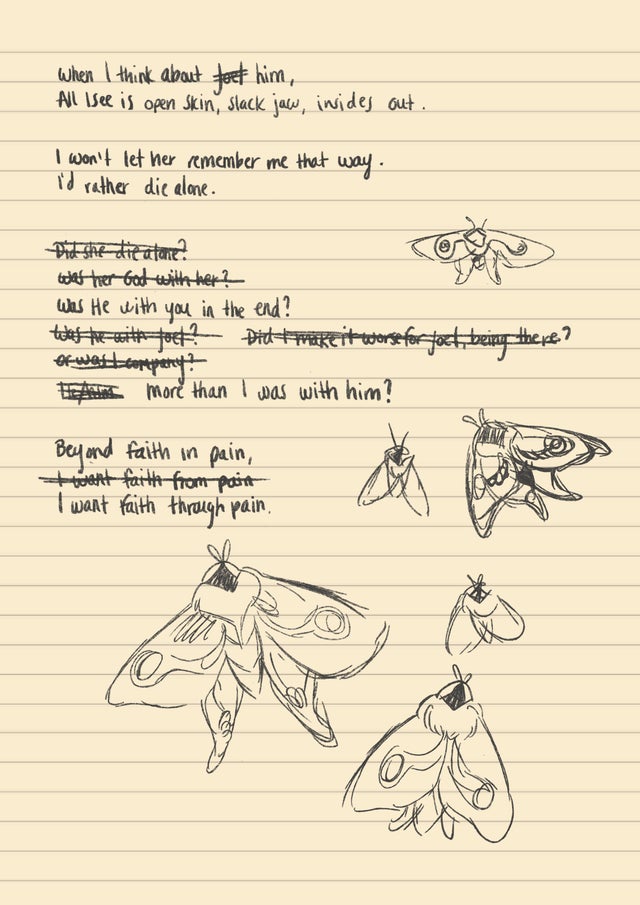 when I think about Joel him,
All I see is open skin, slack jaw, insides out.
I won't let her remember me that way.
I'd rather die alone.
Did she die alone?
was her God with her?
was He with you in the end?
Was he with Joel? Did I make it worse for Joel, being there?
or was I company?
more than I was with him?
Beyond faith in pain,
I want faith from pain
I want faith through pain.